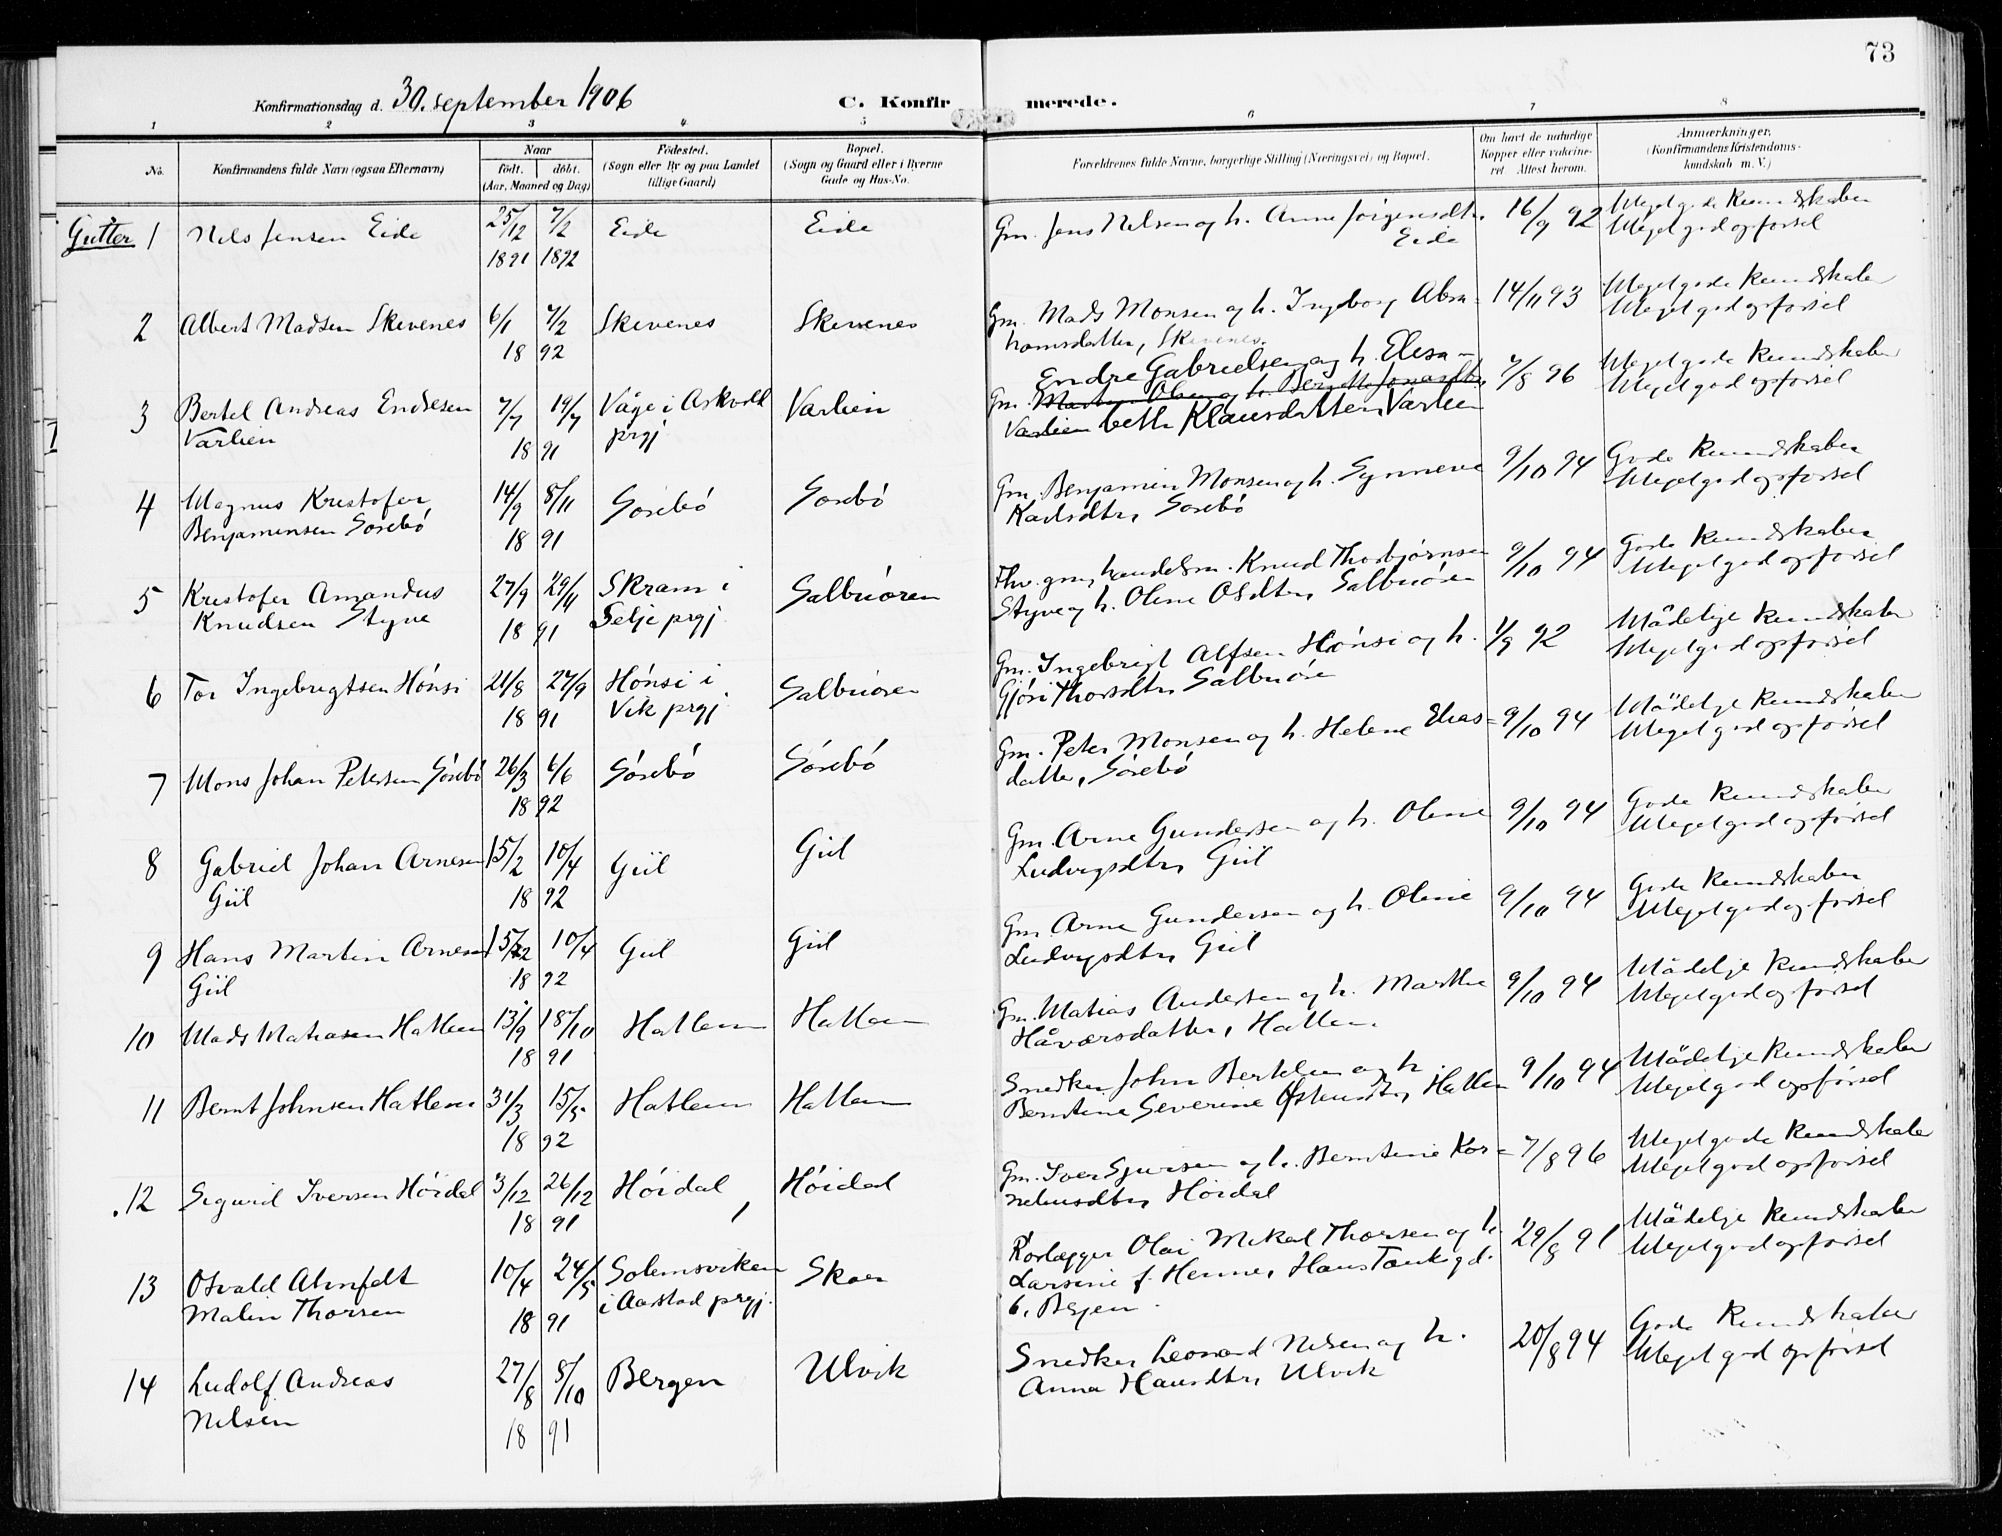 73
Konfirmationsdag d. 30. september 1906
C. Konfirmerede.
1 2 3 4 5 6 7 8
No. Konfirmandens fulde Navn (ogsaa Efternavn) Naar født. døbt. (Aar, Maaned og Dag) Fødested. (Sogn eller By og paa Landet tillige Gaard) Bopæl. (Sogn og Gaard eller i Byerne Gade og Hus-No. Forældrenes fulde Navne, borgerlige Stilling (Næringsvei) og Bopæl. Om havt de naturlige Kopper eller vakcineret. Attest herom. Anmærkninger, (Konfirmandens Kristendomskundskab m. V.)
Gutter 1 Nils Jensen Eide 25/12 1891 7/2 1892 Eide Eide Gm. Jens Nilsen og h. Anne Jørgensdtr. Eide 16/9 92 Meget gode kundskaber
Meget god opførsel
2 Albert Madsen Skivenes 6/1 7/2 18 92 Skivenes Skivenes Gm. Mads Monsen og h. Ingeborg Abra=
hamsdatter, Skivenes. 14/11 93 Meget gode kundskaber
Meget god opførsel
3 Bertel Andreas Endresen
Varlien 7/7 19/7 18 91 Våge i Askvold
prgj. Varlien Endre Gabrielsen og h. Elisa-
Gm. Olsen og h.
Varlien beth Klausdatter Varlien 7/8 96 Meget gode kundskaber
Meget god opførsel
4 Magnus Kristofer
Benjaminsen Sørebø 14/9 8/11 18 91 Sørebø Sørebø Gm. Benjamin Monsen og h. Synneve
Karlsdtr, Sørebø 9/10 94 Gode kundskaber
Meget god opførsel
5 Kristofer Amandus
Knudsen Styve 27/9 29/11 18 91 Skram i
Selje prgj. Salbuøren Fhv. gm, handelsm. Knud Thorbjørnsen
Styve og h. Oline Olsdtr, Salbuøren 9/10 94 Gode kundskaber
Meget god opførsel
6 Tor Ingebrigtsen Hønsi 21/8 27/9 18 91 Hønsi i
Vik prgj. Salbuøren Gm. Ingebrigt Alfsen Hønsi og h.
Gjøri Thorsdtr Salbuøre 1/9 92 Mådelige kundskaber
Meget god opførsel
7 Mons Johan Petersen Sørebø 26/3 6/6 18 92 Sørebø Sørebø Gm. Peter Monsen og h. Helene Elias=
datter, Sørebø 9/10 94 Mådelige kundskaber
Meget god opførsel
8 Gabriel Johan Arnesen
Giil 15/2 10/4 18 92 Giil Giil Gm. Arne Gundersen og h. Oline
Ludvigsdtr, Giil 9/10 94 Gode kundskaber
Meget god opførsel
9 Hans Martin Arnesen
Giil 15/2 10/4 18 92 Giil Giil Gm. Arne Gundersen og h. Oline
Ludvigsdtr, Giil 9/10 94 Gode kundskaber
Meget god opførsel
10 Mads Matiasen Hatlem 13/9 18/10 18 91 Hatlem Hatlem Gm. Matias Andersen og h. Marthe
Håversdatter, Hatlem. 9/10 94 Mådelige kundskaber
Meget god opførsel
11 Bernt Johnsen Hatlem 31/3 15/5 18 92 Hatlem Hatlem Snedker John Bertelsen og h.
Berntine Severine Hatlem 9/10 94 Mådelige kundskaber
Meget god opførsel
12 Sigurd Iversen Høidal 3/12 26/12 18 91 Høidal Høidal Gm. Iver Sjursen og h. Berntine Kor=
neliusdtr, Høidal 7/8 96 Meget gode kundskaber
Meget god opførsel
13 Osvald Ahnfelt
Malin Thorsen 10/4 24/5 18 91 Solemsviken
i Aarstad prgj. Skor Rørlægger Olai Mikal Thorsen og h.
Larsine f. Henne, Hans Tanksgd.
6, Bergen. 29/8 91 Mådelige kundskaber
Meget god opførsel
14 Ludolf Andreas
Nilsen 27/8 8/10 18 91 Bergen Ulvik Snedker Leonard Nilsen og h.
Anna Hansdtr, Ulvik 20/8 94 Gode kundskaber
Meget god opførsel